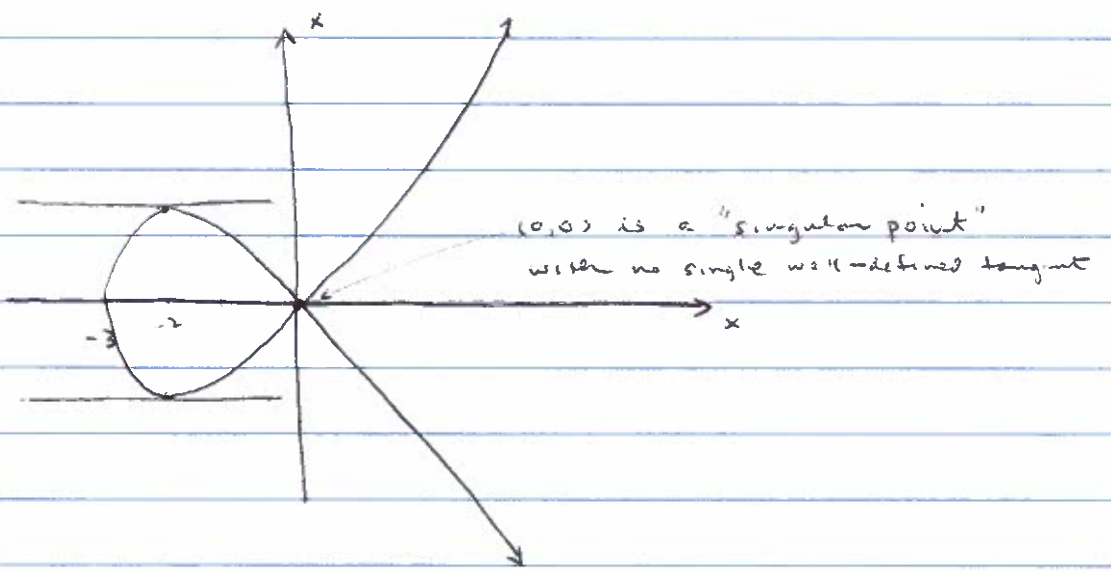 x
(0,0) is a "singular point"
with no single well-defined tangent
-2
x
-3